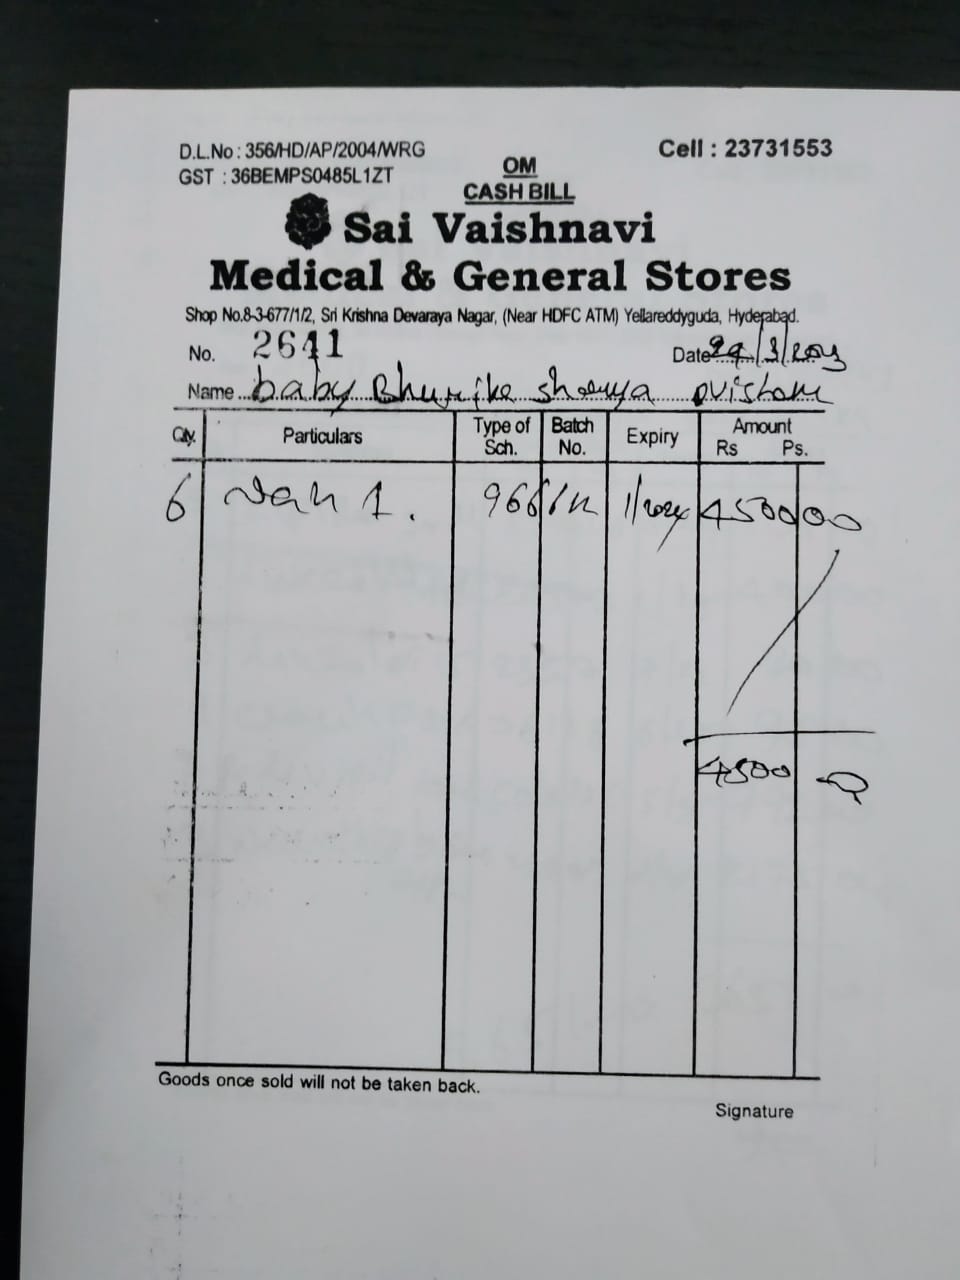 D.L.No : 356/HD/AP/2004/WRG
Cell : 23731553
GST : 36BEMPS0485L1ZT
OM
CASH BILL
Sai Vaishnavi
Medical & General Stores
Shop No.8-3-677/1/2, Sri Krishna Devaraya Nagar, (Near HDFC ATM) Yellareddyguda, Hyderabad.
No. 2641
Date /3/2023
Name baby
Qty. Particulars Type of Sch. Batch No. Expiry Amount Rs Ps.
6 Nan 1. 1/2024 4500 00
4500
Goods once sold will not be taken back.
Signature